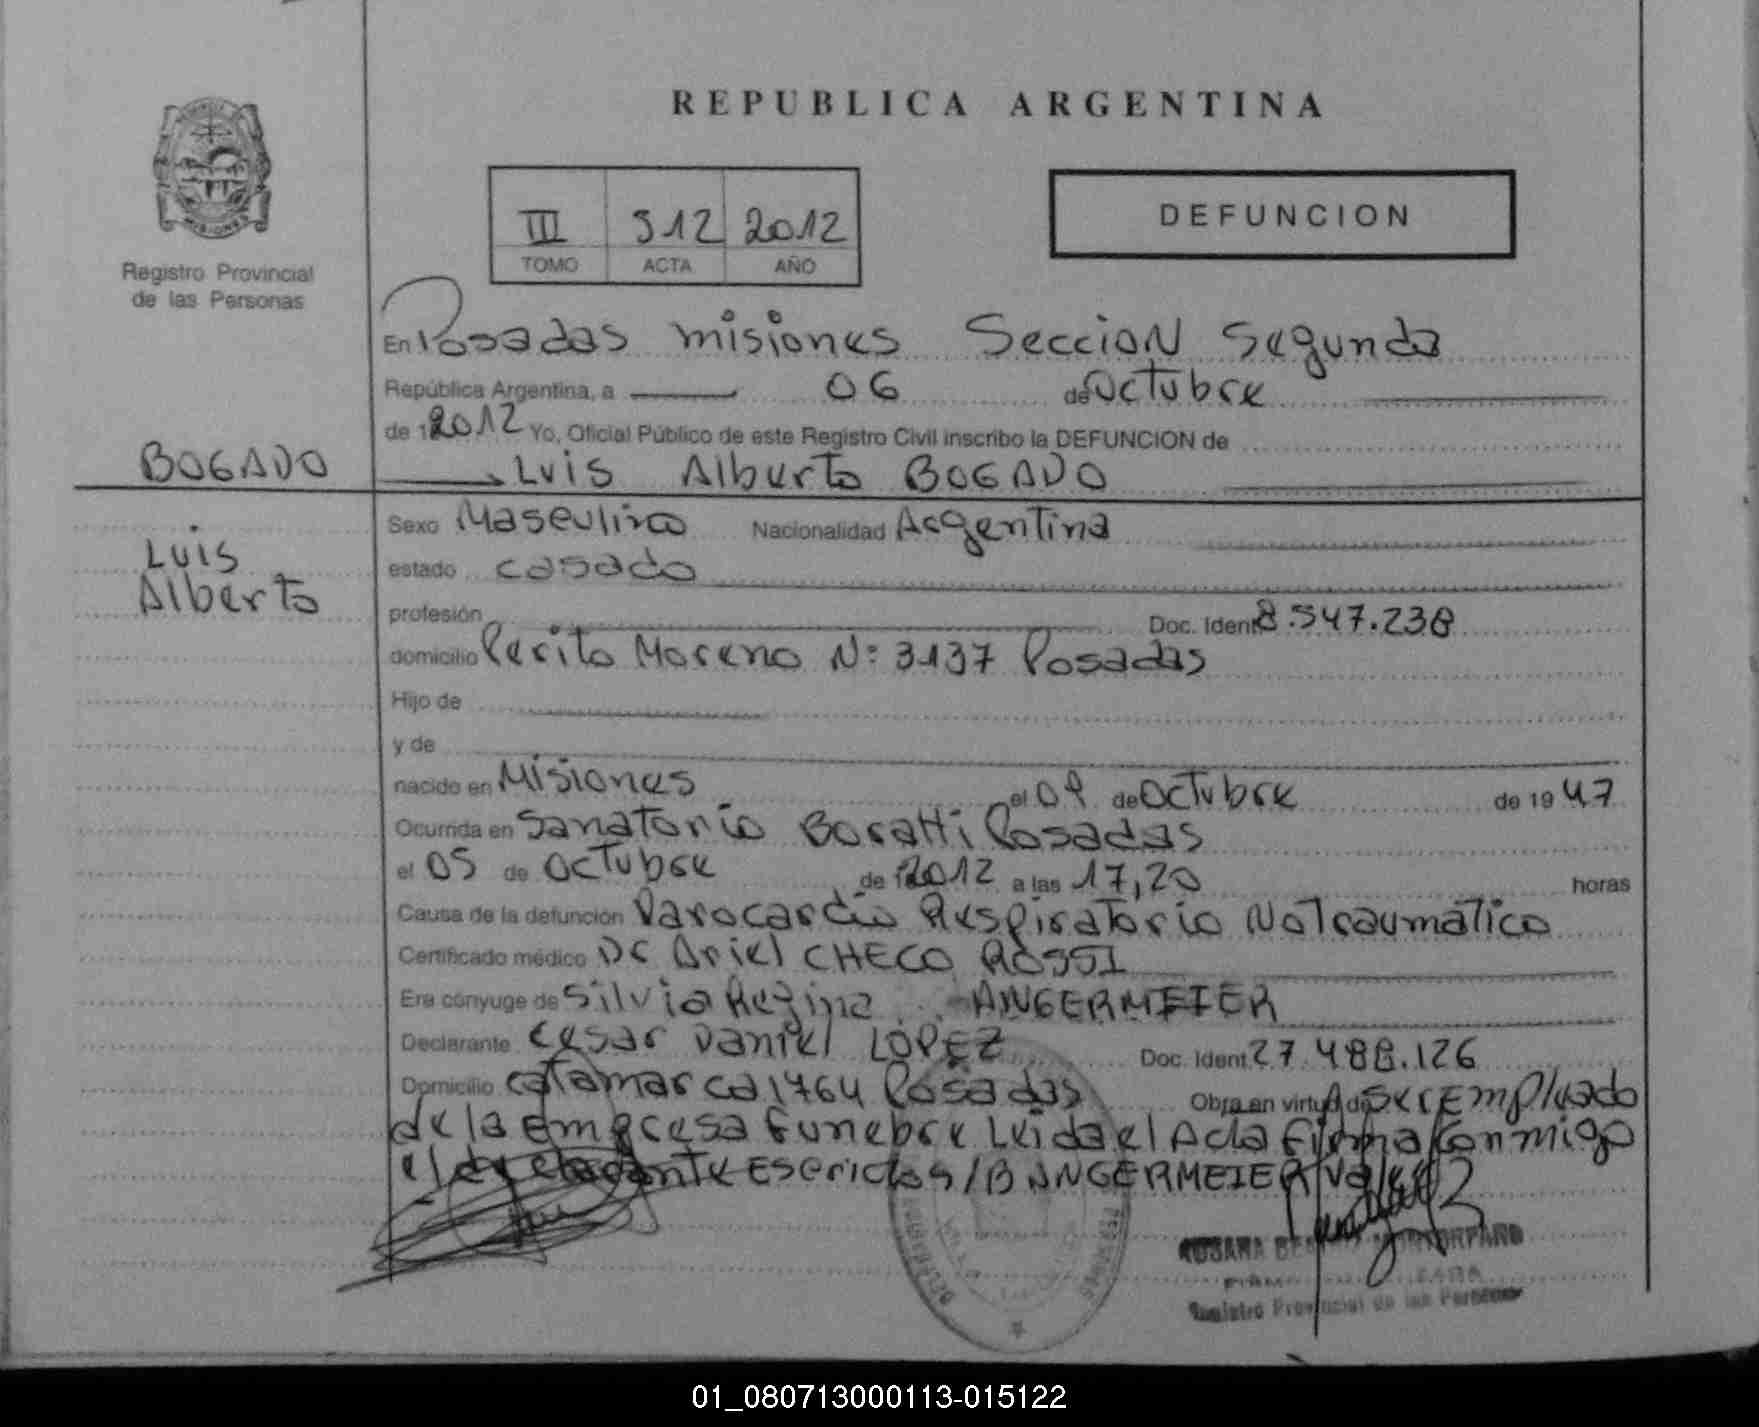 REPUBLICA ARGENTINA
III 312 2012
TOMO ACTA AÑO
DEFUNCION
Registro Provincial
de las Personas
BOGADO
Luis
Alberto
En Posadas misiones Seccion Segunda
República Argentina, a 06 de Octubre
de 2012 Yo, Oficial Público de este Registro Civil inscribo la DEFUNCION de
Luis Alberto BOGADO
Sexo Masculino Nacionalidad Argentina
estado casado
profesión Doc. Ident. 8.547.238
domicilio Perito Moreno N: 3137 Posadas
Hijo de
y de
nacido en Misiones el 09 de Octubre de 1947
Ocurrida en Sanatorio Boratti Posadas
el 05 de Octubre de 2012 a las 17,20 horas
Causa de la defunción Parocardio Respiratorio NoTraumático
Certificado médico Dr Ariel CHECO ROSSI
Era cónyuge de Silvia Regina ANGERMEIER
Declarante Cesar Daniel LOPEZ Doc. Ident. 27.488.126
Domicilio catamarca 1764 Posadas Obra en virtud de ser Empleado
de la Empresa funebre Leida el Acta Firma Conmigo
el declarante Escrido s/B ANGERMEIER Vale
Registro Provincial de las Personas
01_080713000113-015122